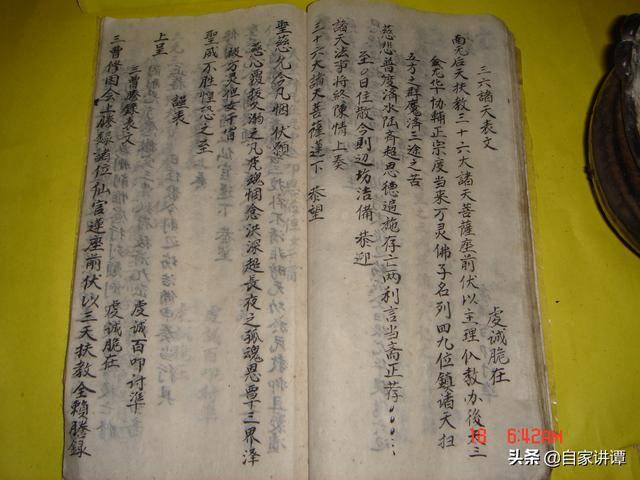 三六諸天表文
虔诚跪在
南无后天扶教三十六大諸天菩薩座前伏以主理仏教办後天三
金光华协輔正宗度当来万灵佛子名列四九位鎮诸天扫
五方之群魔濟三途之苦
慈悲普度濟水陆斉超恩德遍施存亡两利言当斋正荐
至日住散令則迈坊洁備 恭迎
諸天法事将陳情上奏
三十六大諸天菩薩蓮下 恭望
聖慈允今凡悃 伏願
慈心鍳救溺之凡庶魂悃愈洪深超長夜之孤魂恩十三界泽
被万灵
聖威不胜惶恐之至
謹表
上呈
三曹謄録表文
虔诚百叩讨準
虔诚跪在
三曹修因会上謄録諸位仙官蓮座前伏以三天扶教全賴謄録
18 6:42AM
头条 @自家讲谭